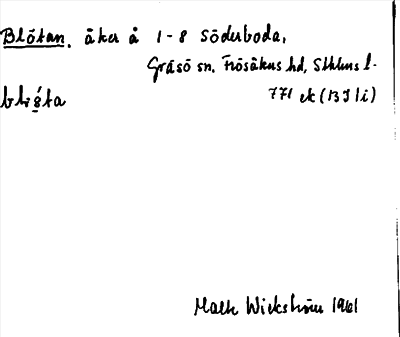 Blötan. åker å 1-8 Söderboda,
Gräsö sn, Frösåkers hd, Sthlms l.
771 ek (13I1i)
Matts Wickström 1961